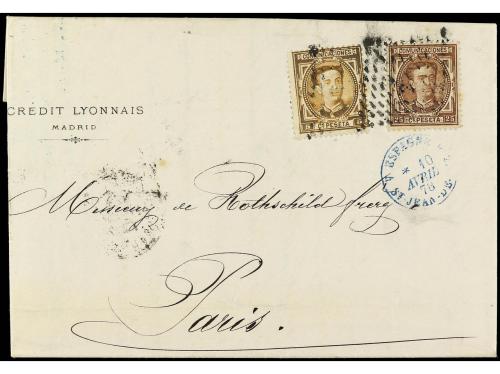 COMUNICACIONES
COMUNICACIONES
CREDIT LYONNAIS
MADRID
CT PESETA
25 CT PESETA 25
ESPAGNE
10
AVRIL
76
ST JEAN-DE
Messieurs de Rothschild frères
Paris.